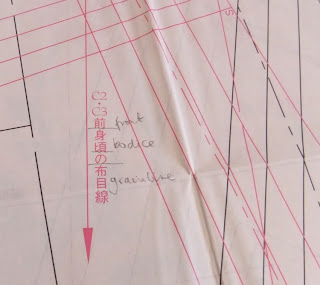 C2・C3前身頃の布目線
front
bodice
grainline
S